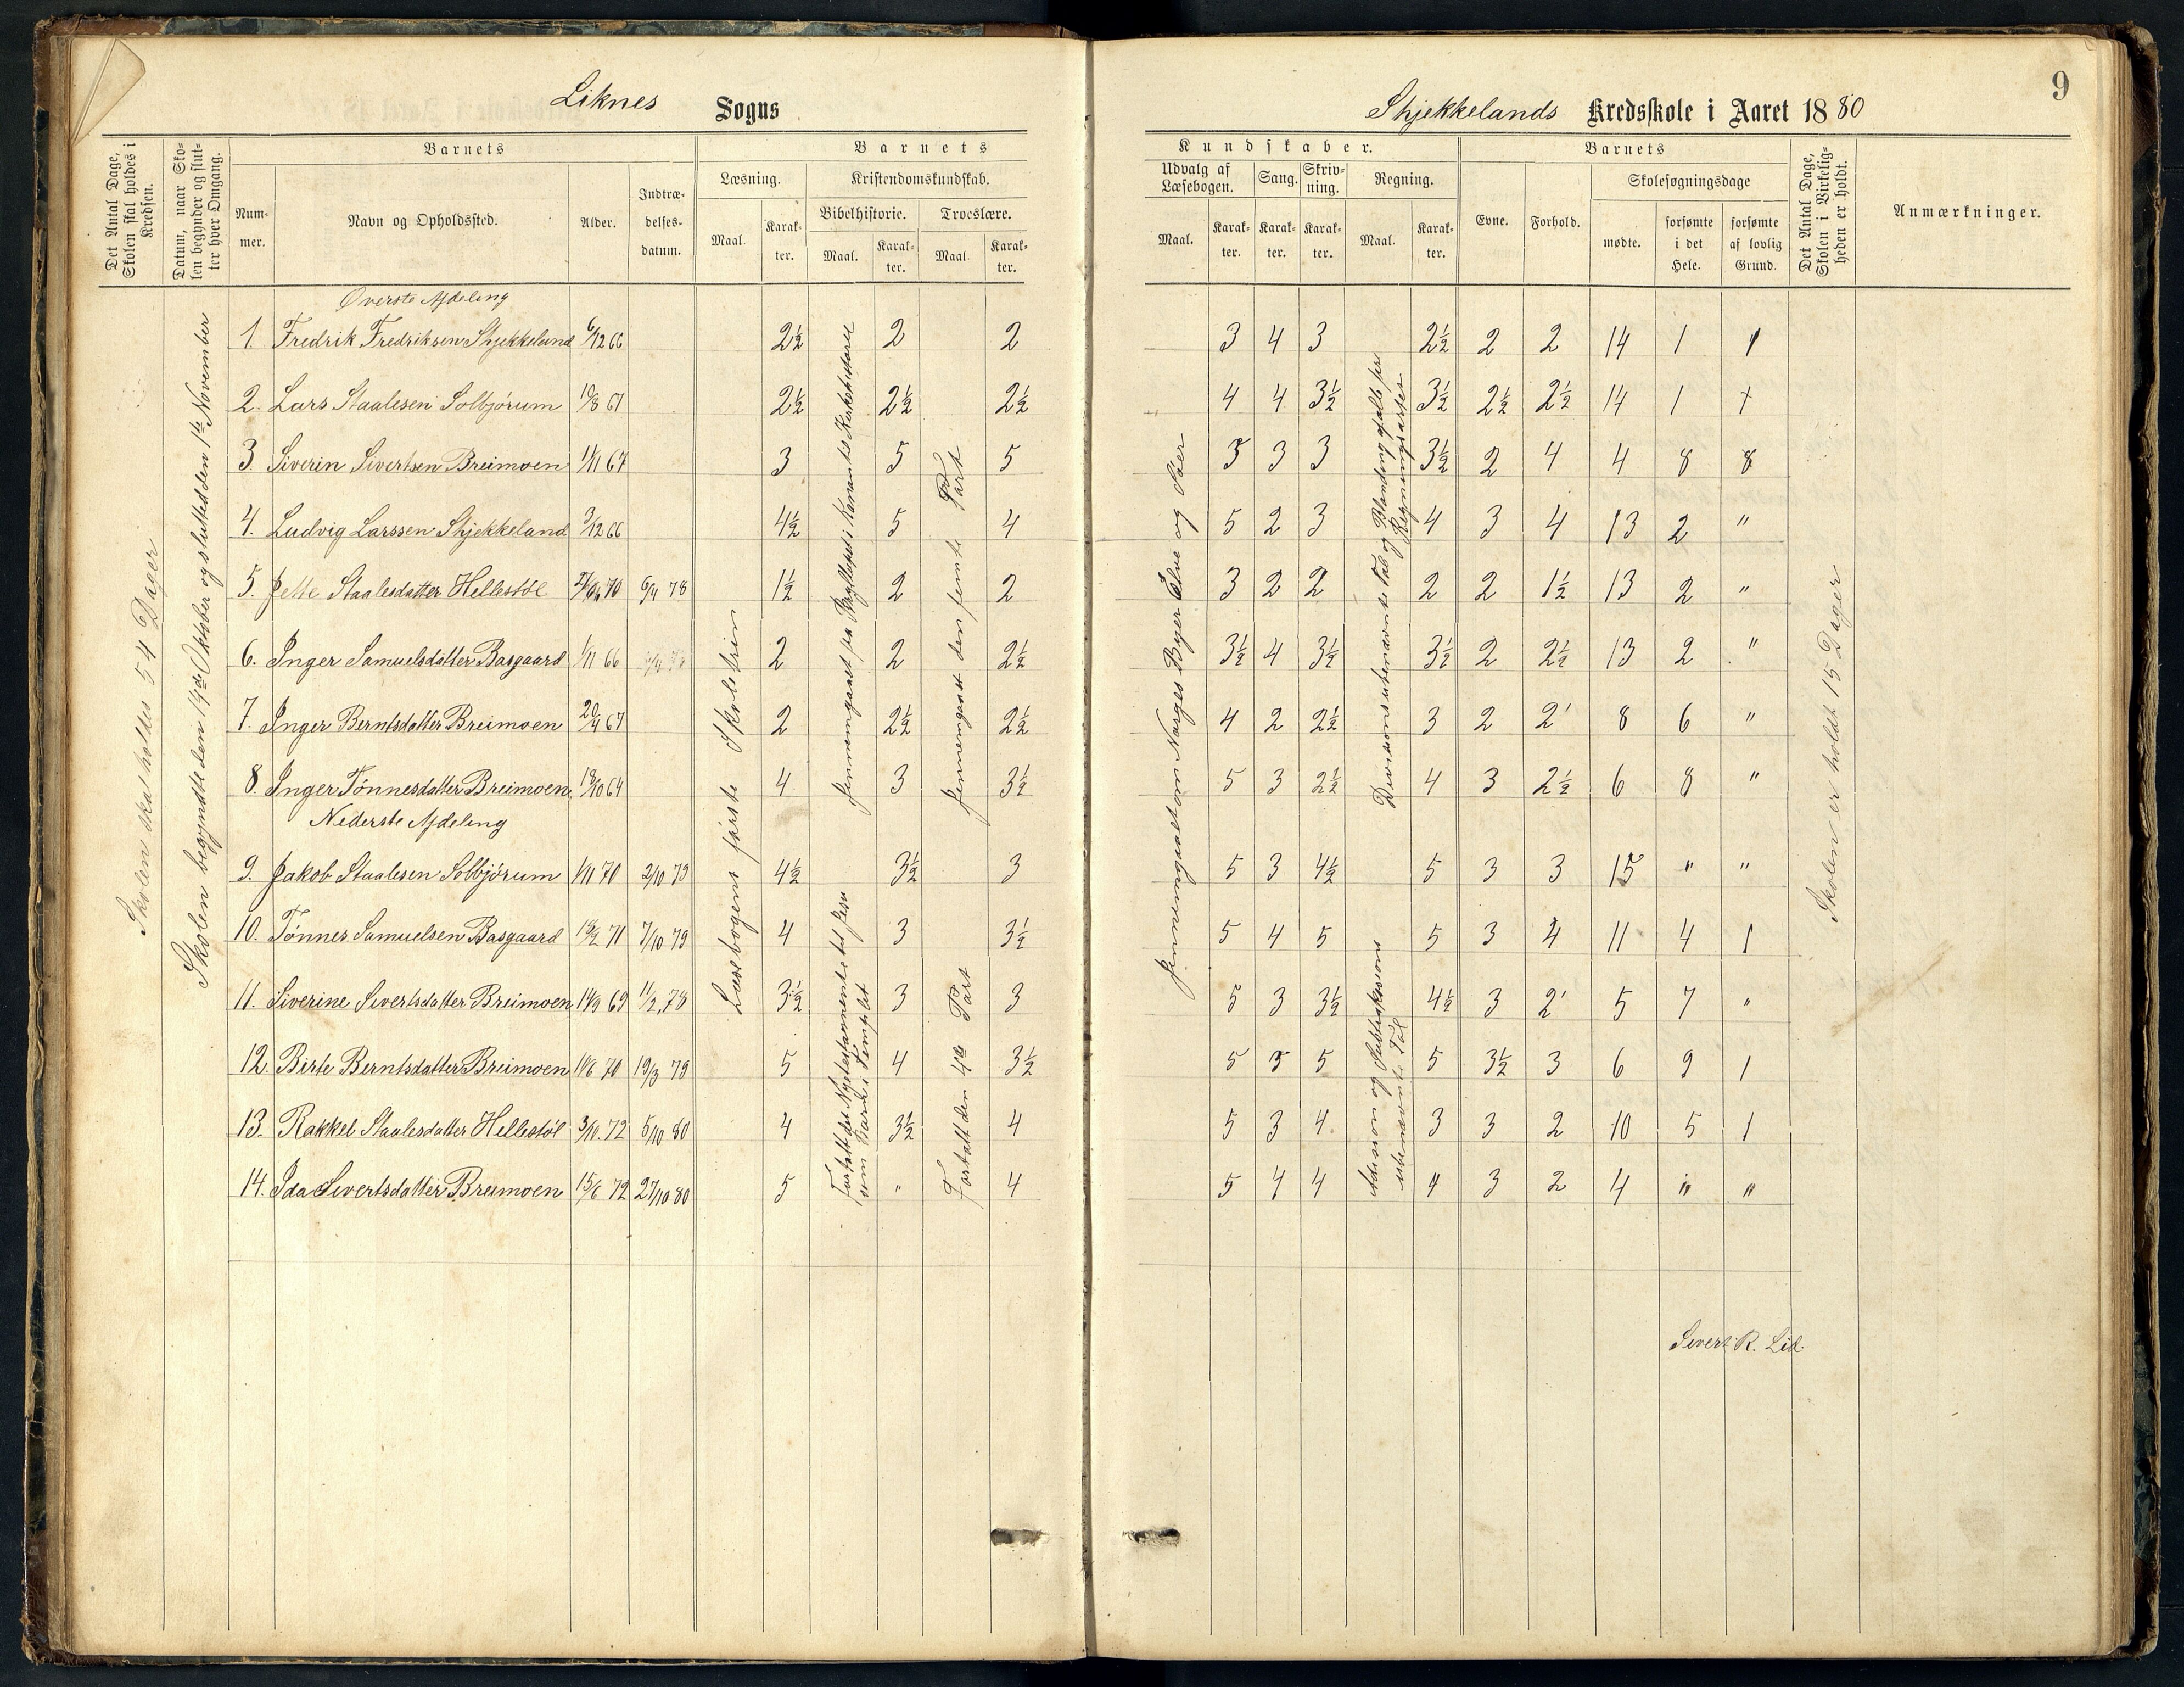 Liknes Sogns
Skjekkelands Kredsskole i Aaret 1880
9
Det Antal Dage, Skolen skal holdes i Kredsen.
Datum, naar Skolen begynder og slutter hver Omgang.
Barnets
Nummer.
Navn og Opholdssted.
Alder.
Indtrædelsesdatum.
Barnets
Kundskaber.
Læsning.
Maal.
Karakter.
Kristendomskundskab.
Bibelhistorie.
Maal.
Karakter.
Troeslære.
Maal.
Karakter.
Udvalg af Læsebogen.
Maal.
Karakter.
Sang.
Karakter.
Skrivning.
Karakter.
Regning.
Maal.
Karakter.
Barnets
Evne.
Forhold.
Skolesøgningsdage
mødte.
forsømte i det Hele.
forsømte af lovlig Grund.
Det Antal Dage, Skolen i Virkeligheden er holdt.
Anmærkninger.
Skolen skal holdes 54 Dager
Skolen begyndte den 14de Oktober og slutted den 1te November
Læsebogens første Skoletrin
Jennemgaaet den femte Part
Fortalt det Nyetestamente til Jesu som Barn i Templet
Fortalt den 4de Part
Jennemgaaet om Norges Byer Elve og Søer
Adision og Subtraksions ubenævnte Tal
Skolen er holdt 15 Dager
Øverste Afdeling
1. Fredrik Fredriksen Skjekkeland 6/12 66 2½ 2 2 3 4 3 2½ 2 2 14 1 1
2. Lars Staalesen Solbjørum 10/8 67 2½ 2½ 2½ 4 4 3½ 3½ 2½ 2½ 14 1 1
3. Siverin Sivertsen Breimoen 11/11 67 3 5 5 3 3 3 3½ 2 4 4 8 8
4. Ludvig Larssen Skjekkeland 3/12 66 4½ 5 4 5 2 3 4 3 4 13 2 "
5. Jette Staalesdatter Hellestöl 70 6/4 78 1½ 2 2 3 2 2 2 2 1½ 13 2 "
6. Inger Samuelsdatter Basgaard 1/11 66 2 2 2½ 3½ 4 3½ 3½ 2 2½ 13 2 "
7. Inger Berntsdatter Breimoen 20/4 67 2 2½ 2½ 4 2 2½ 3 2 2 8 6 "
8. Inger Tönnesdatter Breimoen 18/10 64 4 3 3½ 5 3 2½ 4 3 2½ 6 8 "
Nederste Afdeling
9. Jakob Staalesen Solbjörum 1/11 70 2/10 79 4½ 3½ 3 5 3 4½ 5 3 3 15 " "
10. Tönnes Samuelsen Basgaard 18/2 71 7/10 79 4 3 3½ 5 4 5 5 3 4 11 4 1
11. Siverine Sivertsdatter Breimoen 14/9 69 11/2 78 3½ 3 3 5 3 3½ 4½ 3 2 5 7 "
12. Birte Berntsdatter Breimoen 11/6 70 19/3 79 5 4 3½ 5 5 5 5 3½ 3 6 9 1
13. Rakkel Staalesdatter Hellestöl 3/10 72 5/10 80 4 3½ 4 5 3 4 3 3 2 10 5 1
14. Ida Sivertsdatter Breimoen 15/6 72 27/10 80 5 " 4 5 4 4 4 3 2 4 " "
Sivert R. Lid